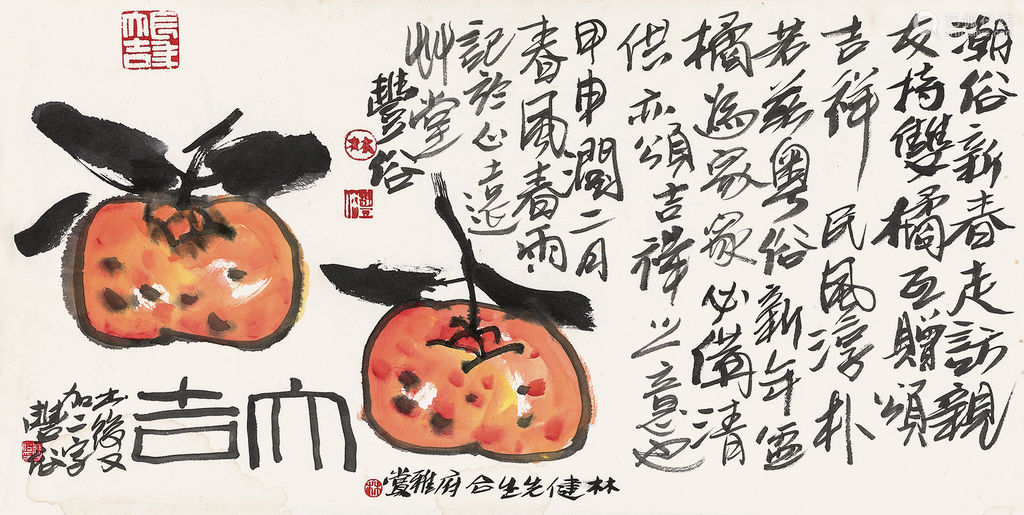 潮俗新春走訪親
友持雙橘互贈頌
吉祥 民風淳朴
若茲粵俗新年盛
橘為家家必備清
供亦頌吉祥之意也
甲申閏二月
春風春雨
記於心遠
草堂
豐俗
大吉
書後又
加二字
豐俗
林健先生合府雅賞